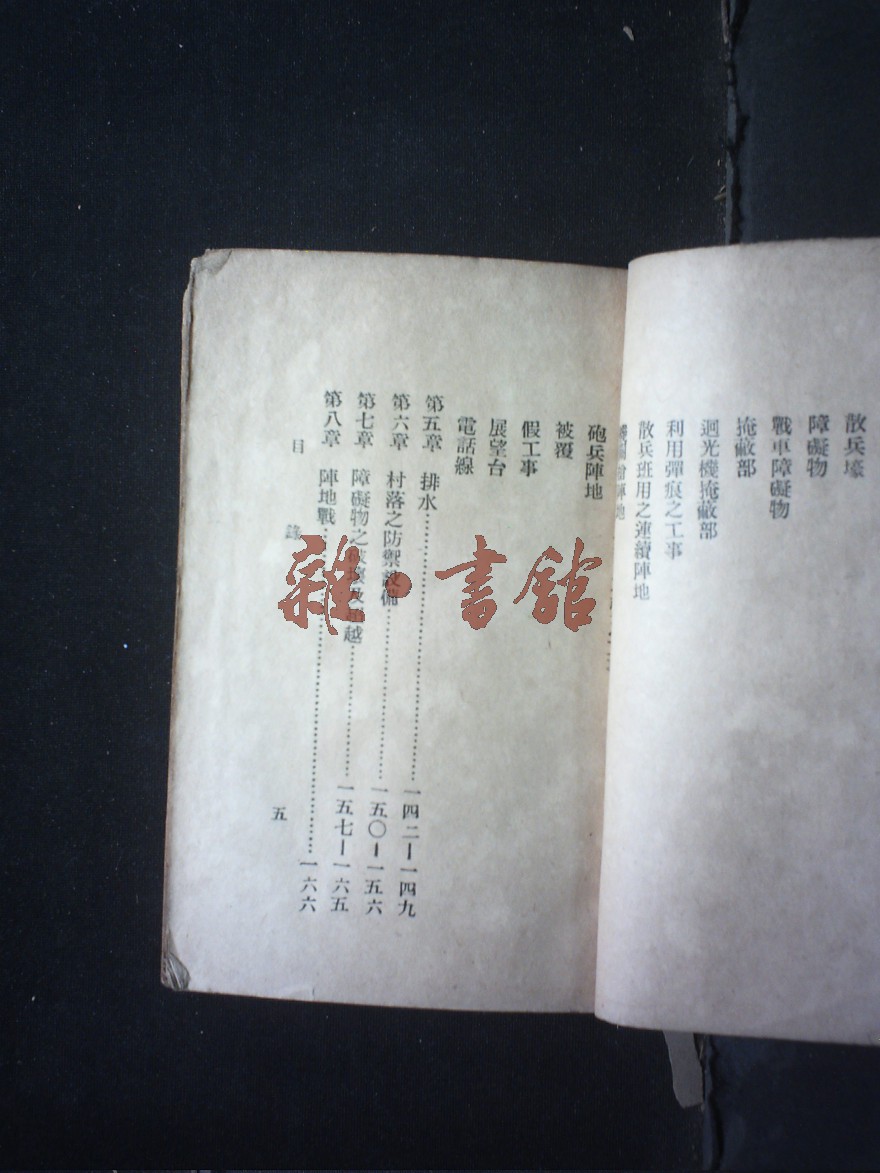 散兵壕
障礙物
戰車障礙物
掩蔽部
迴光機掩蔽部
利用彈痕之工事
散兵班用之連續陣地
陣地
砲兵陣地
被覆
假工事
展望台
電話線
第五章 排水……一四二—一四九
第六章 村落之防禦設備……一五〇—一五六
第七章 障礙物之破壞及超越……一五七—一六五
第八章 陣地戰……一六六
目錄
五
雜·書館